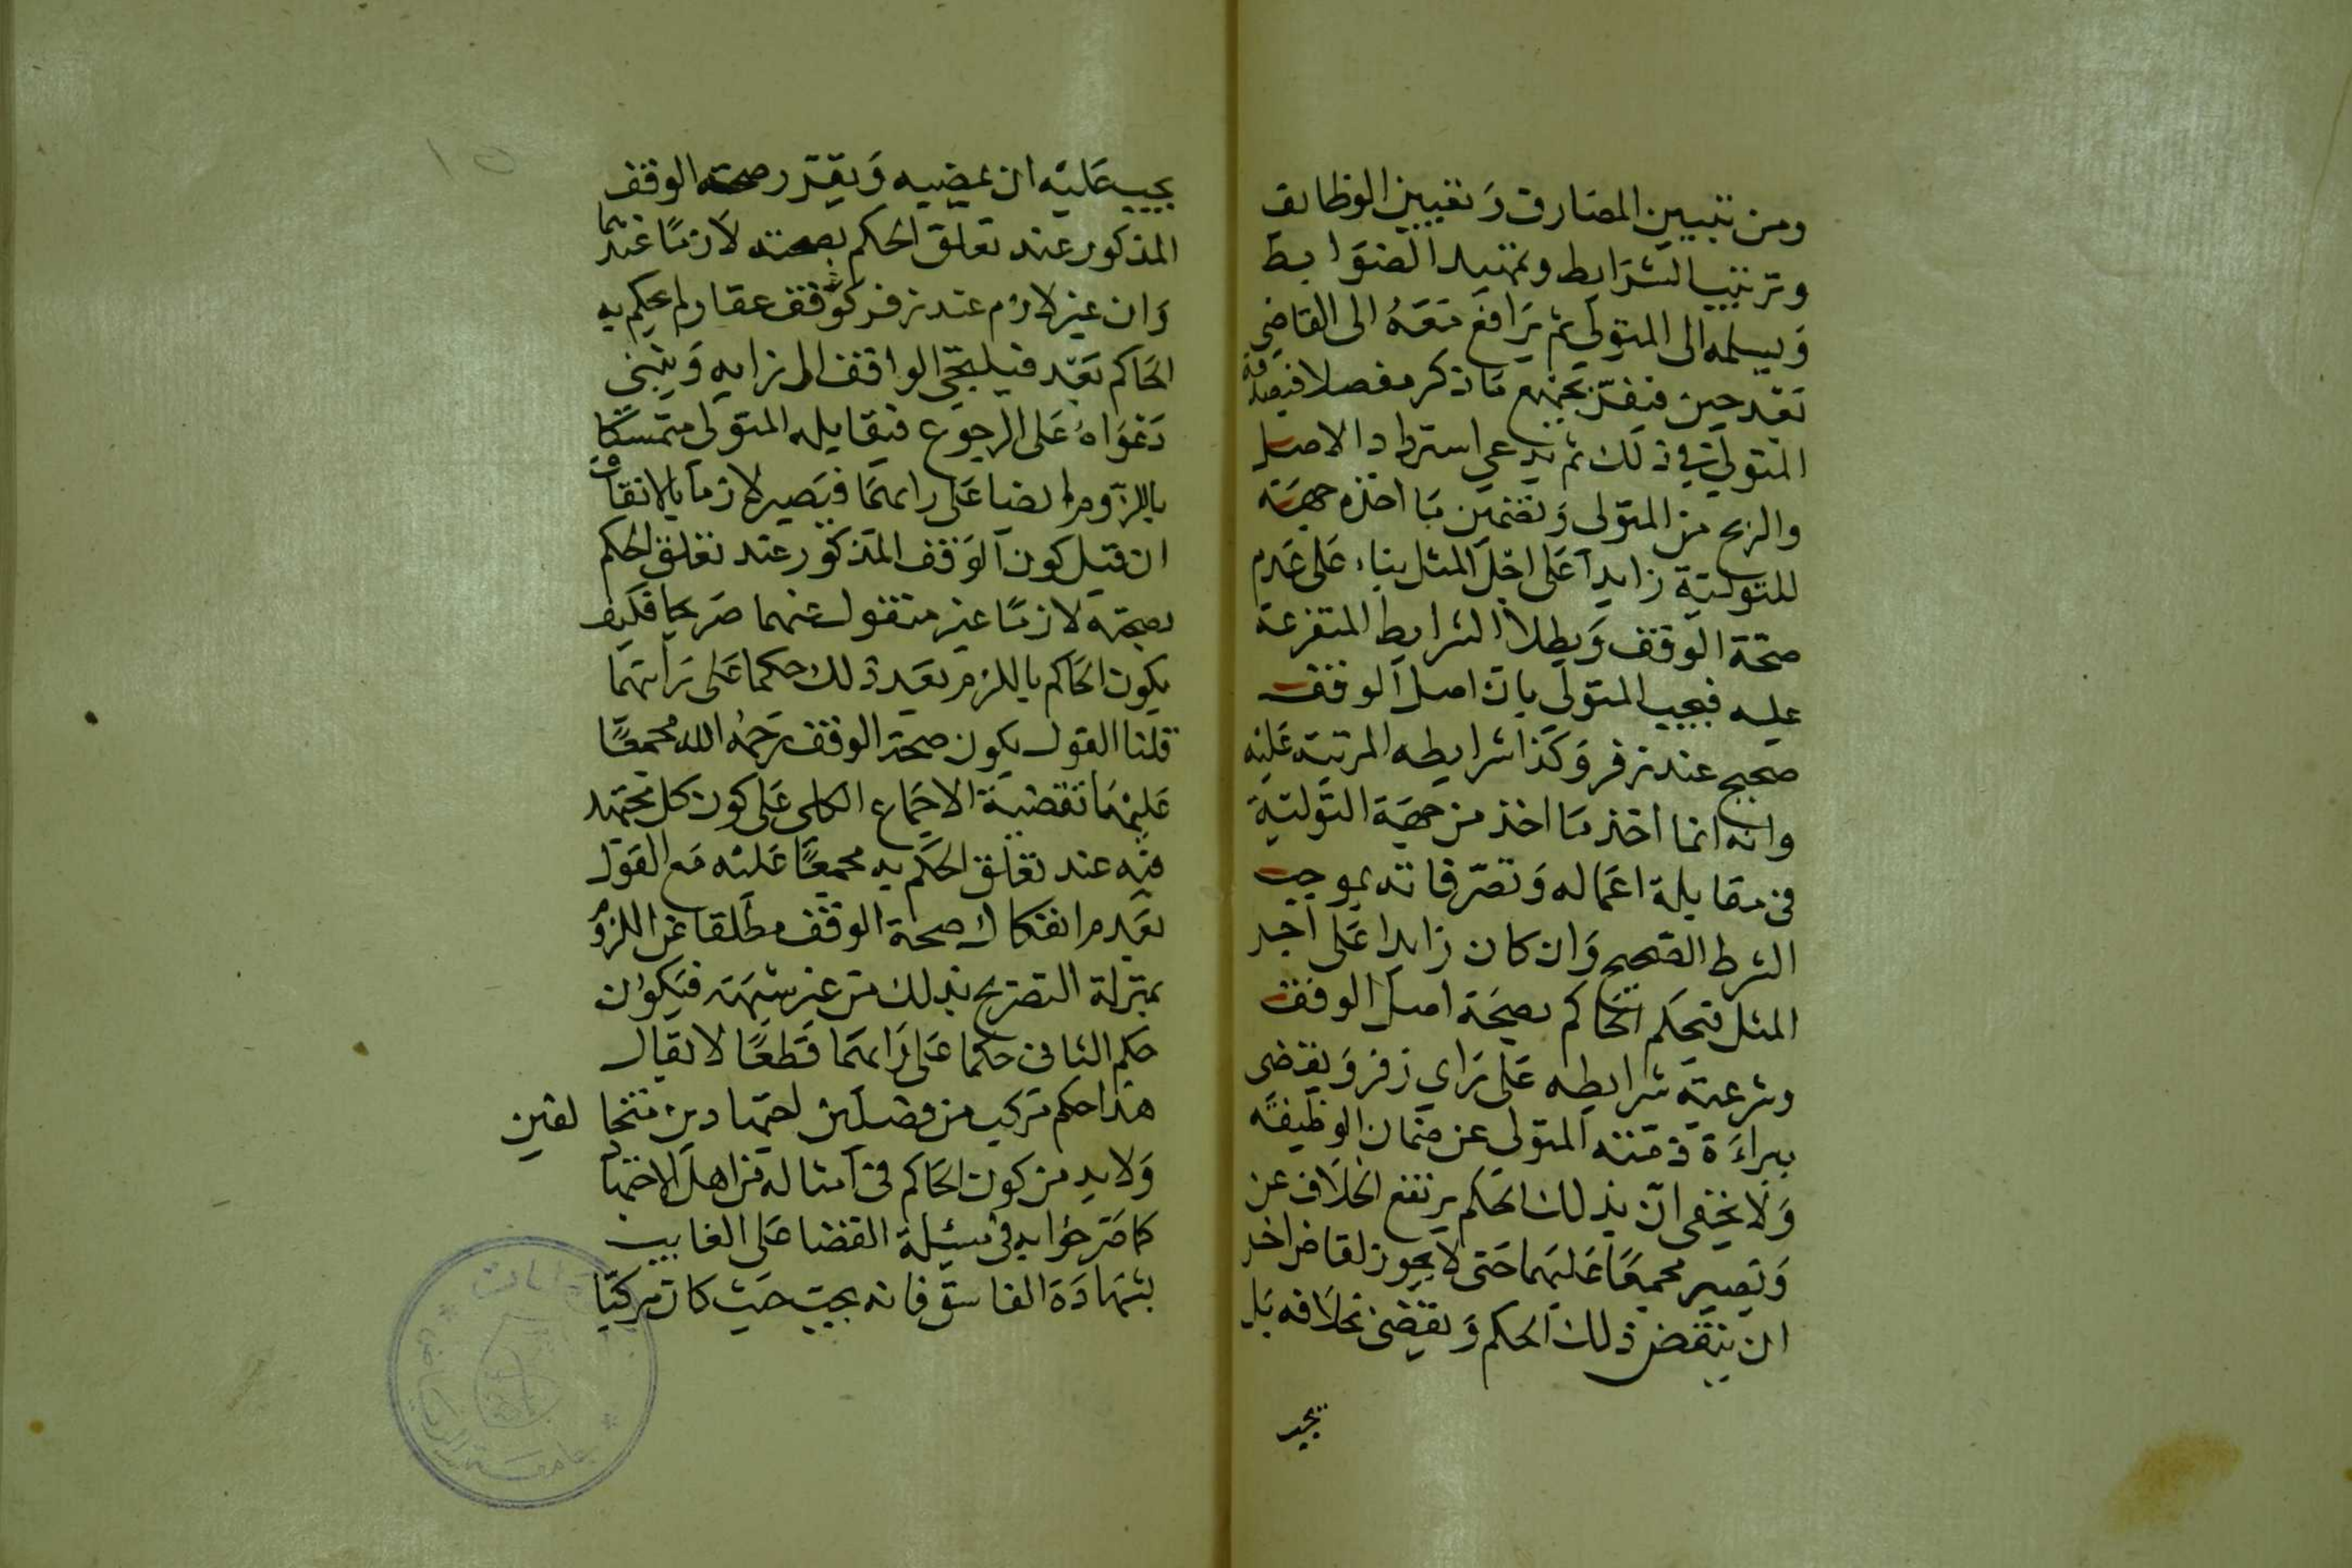 ومن تبيين المصارف وتعيين الوظايف
وترتيب الشرايط وتمهيد الضوابط
ويسلمه الى المتولي ثم يرافع معه الى القاضي
بعد حين فيقر بجميع ما ذكر مفصلا فيصدقه
المتولي في ذلك ثم يدعي استرداد الاصل
والربح من المتولي وتضمين ما اخذه جهة
للتولية زايدا على اجل المثل بناء على عدم
صحة الوقف وبطلان الشرايط المتفرعة
عليه فيجيب المتولي بان اصل الوقف
صحيح عند زفر وكذا شرايطه المرتبة عليه
وانه انما اخذ ما اخذ من جهة التولية
في مقابلة اعماله وتصرفاته بموجب
الشرط الصحيح وان كان زايدا على اجر
المثل فيحكم الحاكم بصحة اصل الوقف
وشرعية شرايطه على راي زفر ويقضي
ببراءة ذمته المتولي عن ضمان الوظيفه
ولا يخفى ان بذلك الحكم يرتفع الخلاف عن
ويصير مجمعا عليهما حتى لا يجوز لقاض اخر
ان ينقض ذلك الحكم ويقضي بخلافه بل
يجب
١٥
يجب عليه ان يمضيه ويقرر صحة الوقف
المذكور عند تعلق الحكم بصحته لازما عندهما
وان غير لازم عند زفر كوقف عقار لم يحكم به
الحاكم بعد فيلتجي الواقف الى زايه ويبني
دعواه على الرجوع فيقابله المتولي متمسكا
باللزوم ايضا على رايهما فيصير لازما بالاتفاق
ان قيل كون الوقف المذكور عند تعلق الحكم
بصحته لازما غير منقول عنهما صريحا فكيف
يكون الحاكم باللزوم بعد ذلك حكما على رايهما
قلنا القول بكون صحة الوقف رحمه الله مجمعا
عليهما تقضية الاجماع الكلي على كون كل مجتهد
فيه عند تعلق الحكم به مجمعا عليه مع القول
بعدم انفكاك صحة الوقف مطلقا عن اللزوم
بمنزلة التصريح بذلك من غير شبهة فيكون
حكم الثاني حكما على رايهما قطعا لا يقال
هذا حكم مركب من فصلين اجتهادين متخالفين
ولا بد من كون الحاكم في امثاله من اهل الاجتهاد
كما صرحوا به في مسئلة القضا على الغايب
بشهادة الفاسق فانه يجب حيث كان مركبا